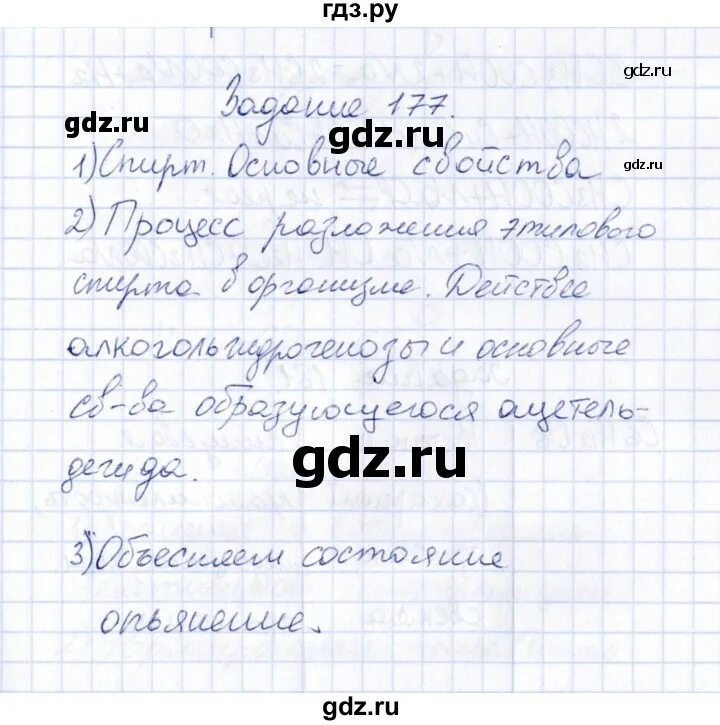 гдз.ру
gdz.ru
Задание 177.
gdz.ru
gdz.ru
gdz.ru
1) Спирт. Основные свойства
2) Процесс разложения этилового
спирта в организме. Действие
алкогольгидрогенозы и основные
св-ва образующегося ацетель-
дегида.
gdz.ru
3) Объесняем состояние
опьянение.
gdz.ru
gdz.ru
gdz.ru